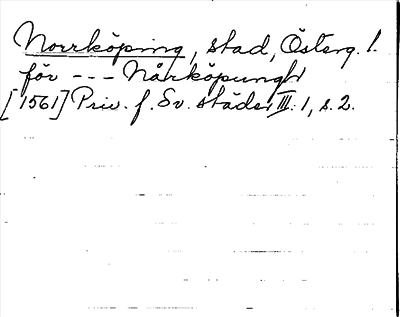 Norrköping, stad, Österg. l.
för --- Nårköpungh
[1561] Priv. f. Sv. städer III: 1, s. 2.